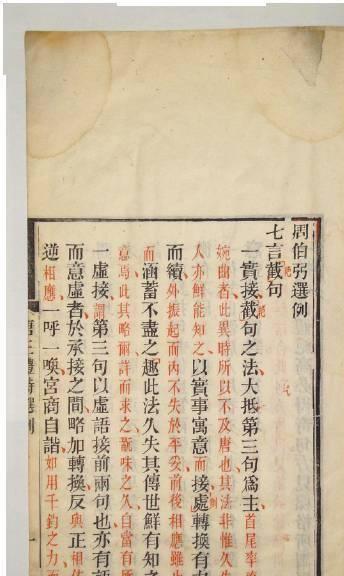 周伯弜選例
七言截句
一實接截句之法大抵第三句爲主首尾率
婉曲者此異時所以不及唐也其法非惟久失
人亦鮮能知之以實事寓意而接處轉換有力
而續外振起而内不失於平妥前後相應雖止
而涵蓄不盡之趣此法久失其傳世鮮有知之
意焉此其略爾詳而求之玩味之久自當有所
一虛接謂第三句以虛語接前兩句也亦有語
而意虛者於承接之間略加轉換反與正相依
逆相應一呼一喚宮商自諧如用千鈞之力而
唐三體詩選例
一